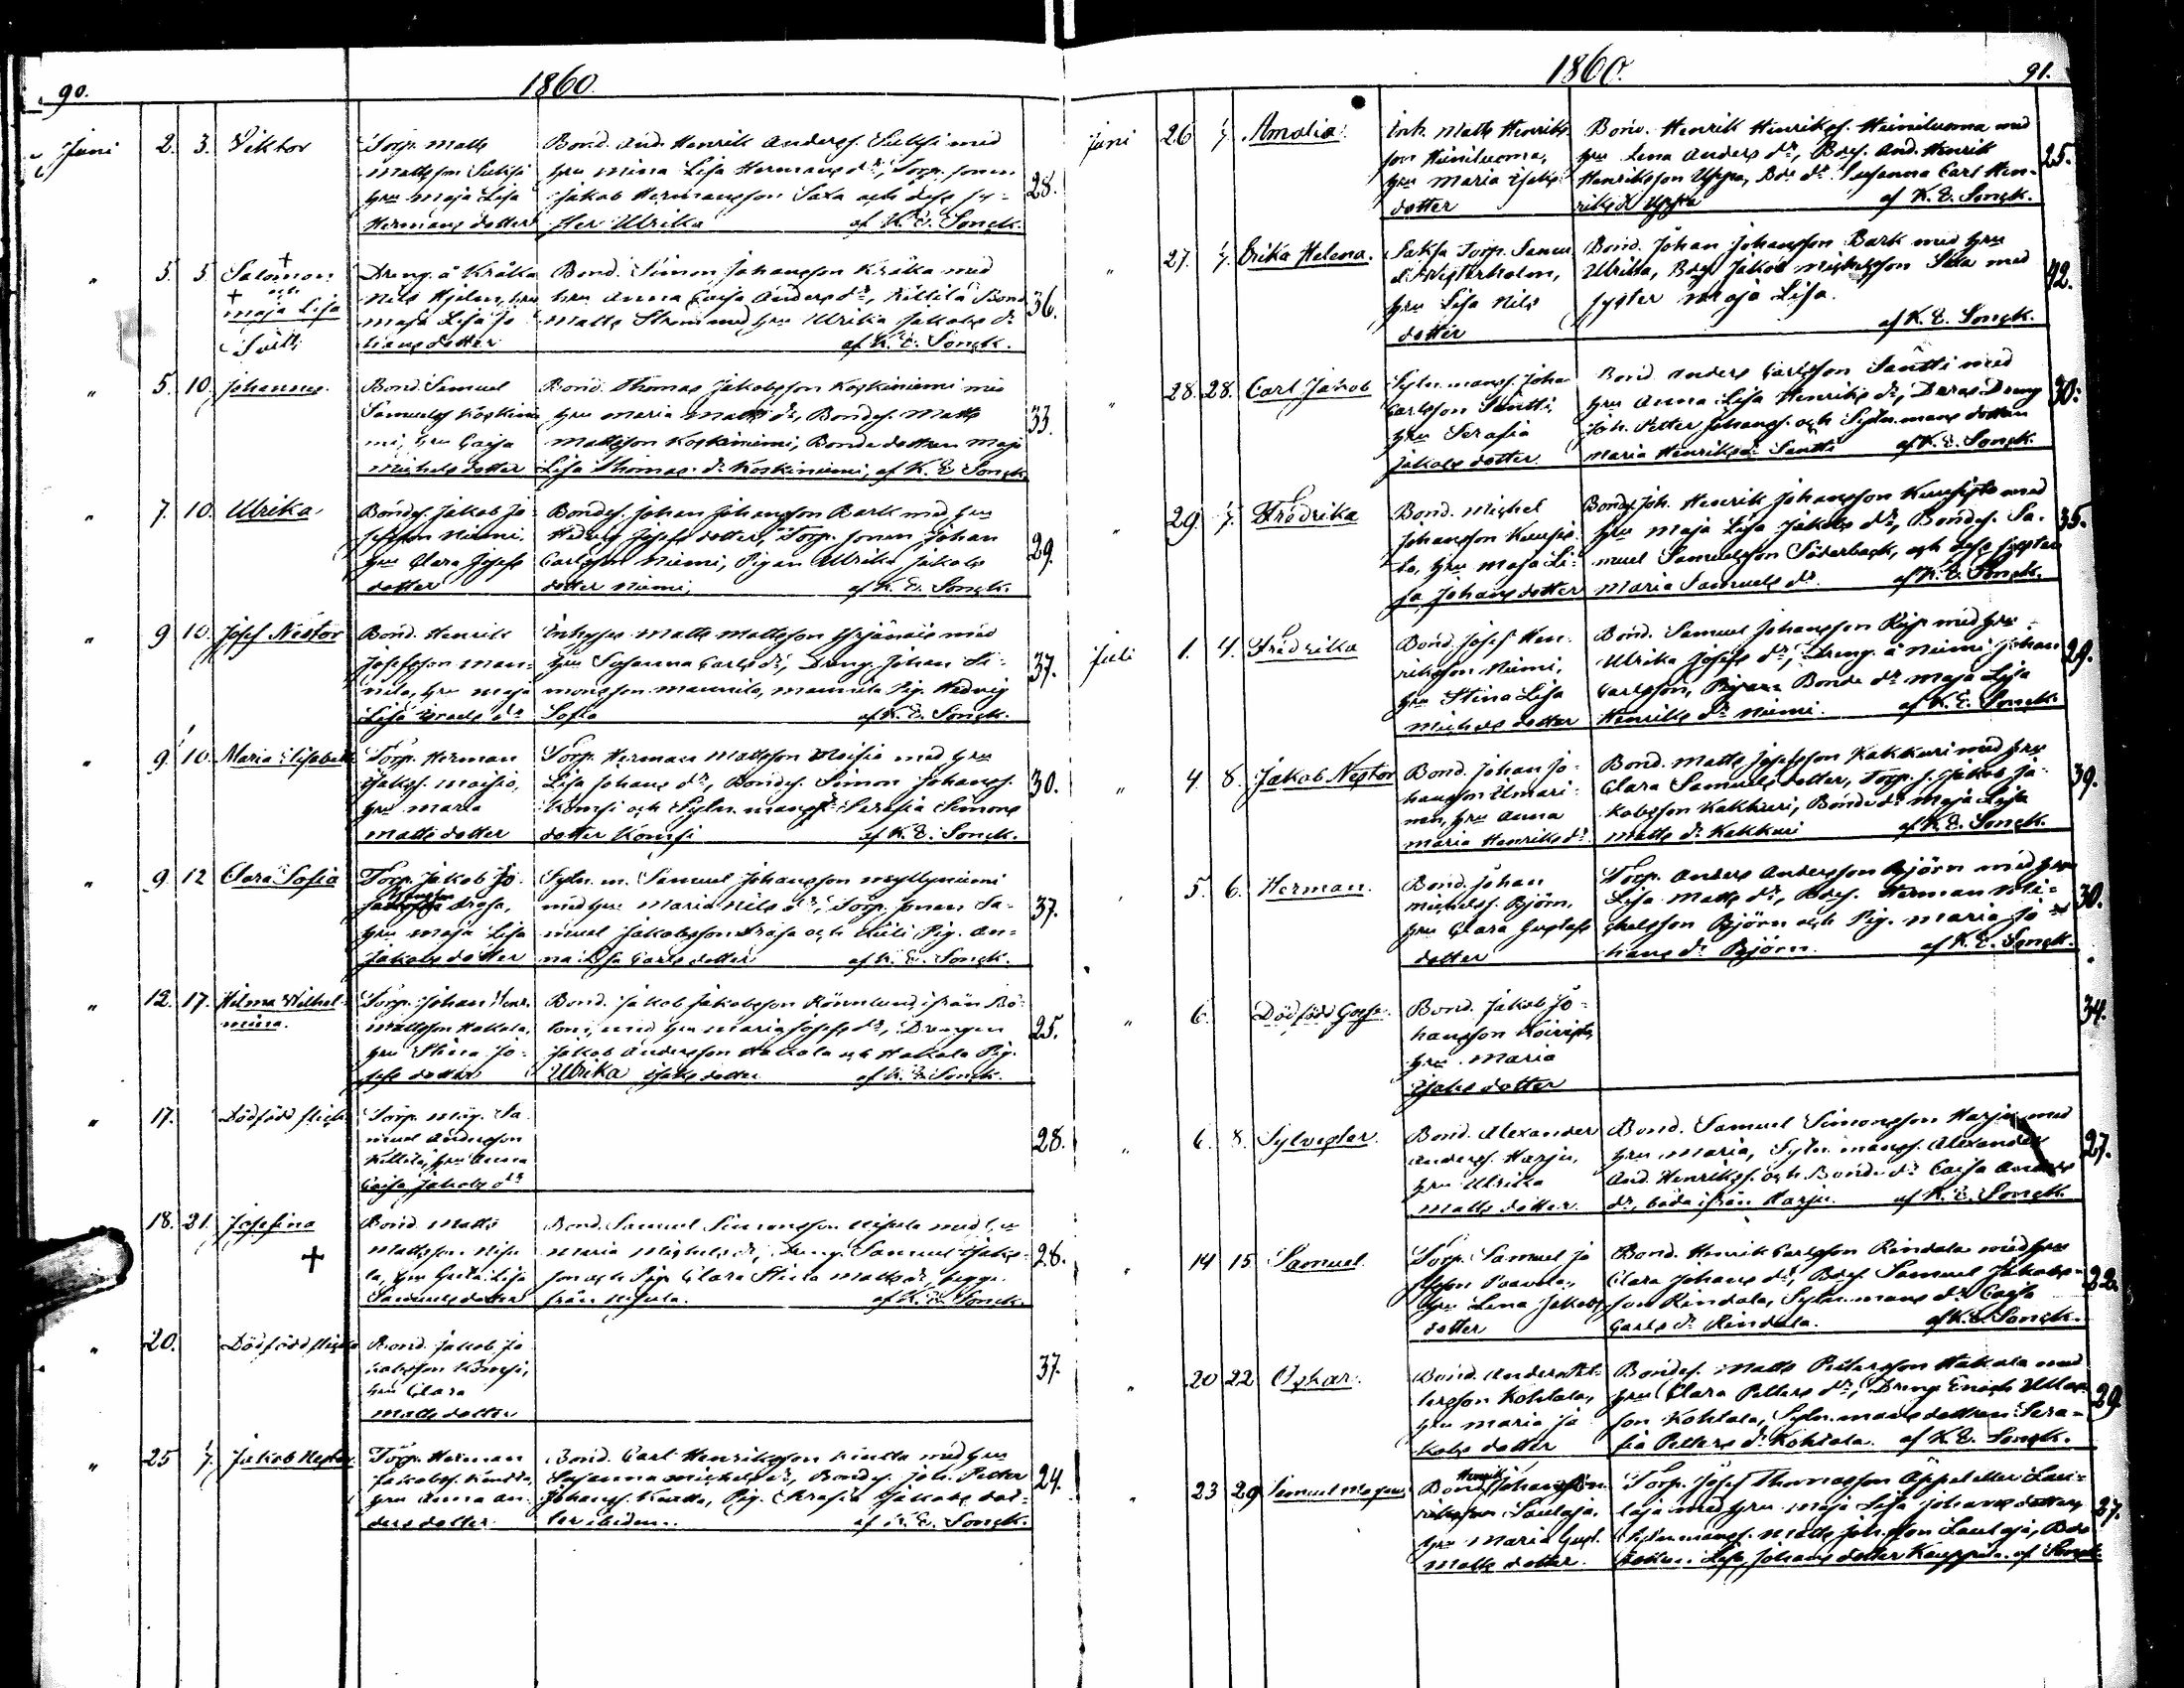 90.
1860.
Juni 2. 3. Viktor
Torp. Matts
Mattsson Luksi
hru Maja Lisa
Hermans dotter
Bond. And. Henrik Anderss. Luksi med
hru Mina Lisa Hermans dr, Torp. sonen
Jakob Hermansson Saxa och dess sy-
ster Ulrika af K. E. Sonck.
28.
" 5. 5. Salomon
och
Maja Lisa
Dreng. å Kråka
Nils Hjelm, hru
Maja Lisa Jo
hans dotter
Bond. Simon Johansson Kråka med
hru Anna Caisa Anders dr, Kittilä Bond.
Matts Ström med hru Ulrika Jakobs dr
af K. E. Sonck.
36.
" 5. 10. Johannes.
Bond. Samuel
Samuelss Koskinie
mi, hru Caisa
Michels dotter
Bond. Thomas Jakobsson Koskiniemi med
hru Maria Matts dr, Bondes. Matts
Mattsson Koskiniemi, Bonde dottren Maja
Lisa Thomas dr Koskiniemi, af K. E. Sonck.
33.
" 7. 10. Ulrika
Bondes. Jakob Jo
sefsson Niemi,
hru Clara Josefs
dotter
Bondes. Johan Johansson Bark med hru
Hedvig Josefs dotter, Torp. sonen Johan
Carlsson Niemi, Pigan Ulrika Jakobs
dotter Niemi, af K. E. Sonck.
29.
" 9 10. Josef Nestor
Bond. Henrik
Josefsson Man-
nila, hru Maja
Lisa Israels dr
Inhyses Matts Mattsson med
hru Susanna Carls dr, Dreng. Johan Si-
monsson Mannila, Mannila Pig. Hedvig
Sofia af K. E. Sonck.
37.
" 9 10. Maria Elisabeth
Torp. Herman
Isakss. Maisio,
hru Maria
Matts dotter
Torp. Herman Mattsson Maisio med hru
Lisa Johans dr, Bondes. Simon Johanss.
Kömsi och Sytn. manss Serafia Simons
dotter Kömsi af K. E. Sonck.
30.
" 9. 12 Clara Sofia
Torp. Jakob Jo
hansson
hru Maja Lisa
Jakobs dotter
Sytn. m. Samuel Johansson Myllyniemi
med hru Maria Nils dr, Torp. sonen Sa-
muel Jakobsson och Pig. An-
na Lisa Carls dotter af K. E. Sonck.
37.
" 12. 17. Hilma Wilhel-
mina.
Torp. Johan Henr.
Mattsson Hakala,
hru Stina Jo-
sefs dotter
Bond. Jakob Jakobsson Rönnlund, ifrån Bö-
med hru Maria Josefs dr, Drengen
Jakob Andersson Hakala och Hakala Pig.
Ulrika Isaks dotter af K. E. Sonck.
25.
" 17. Dödfödd flicka
Torp. måg. Sa
muel Andersson
Kittilä, hru Anna
Caisa Jakobs dr
28.
18. 21. Josefina
Bond. Matts
Mattsson Nisu
la, hru Greta Lisa
Samuels dotter
Bond. Samuel Simonsson Nisula med hru
Maria Michels dr, Dreng. Samuel Isaks-
son och Pig. Clara Stina Matts dr, begge
från Nisula. af K. E. Sonck.
28.
" 20. Dödfödd flicka
Bond. Jakob Ja
kobsson Kömsi,
hru Clara
Matts dotter
37.
" 25 1/7. Jakob Nestor
Torp. Herman
Jakobss. Kuntta,
hru Anna An-
ders dotter.
Bond. Carl Henriksson Kuntta med hru
Susanna Michels dr, Bondes. Joh. Petter
Johanss. Kuntta, Pig. Serafia Jakobs dot-
ter ibidem. af K. E. Sonck.
24.
1860.
91.
Juni 26 1/7. Amalia.
Inh. Matts Henriks-
son Heiniluoma,
hru Maria Isaks
dotter
Bond. Henrik Henrikss. Heiniluoma med
hru Lena Anders dr, Bdes. And. Henrik
Henriksson Uppa, Bde dr Susanna Carl Hen-
riks dr Uppa af K. E. Sonck.
25.
" 27. 1/7. Erika Helena.
Saksa Torp. Samu
el Westerholm,
hru Lisa Nils
dotter
Bond. Johan Johansson Bark med hru
Ulrika, Bdes. Jakob Michelsson Sila med
syster Maja Lisa.
af K. E. Sonck.
42.
" 28. 28. Carl Jakob
Sytn. manss. Johan
Carlsson Säntti,
hru Serafia
Jakobs dotter.
Bond. Anders Carlsson Säntti med
hru Anna Lisa Henriks dr, Deras Dreng
Joh. Petter Johanss. och Sytn. mans dottren
Maria Henriks dr Säntti af K. E. Sonck.
30.
" 29. 1/7. Fredrika
Bond. Michel
Johansson Kuusis-
to, hru Maja Li-
sa Johans dotter
Bondes. Joh. Henrik Johansson Kuusisto med
hru Maja Lisa Jakobs dr, Bondes. Sa-
muel Samuelsson Söderback, och dess syster
Maria Samuels dr. af K. E. Sonck.
35.
Juli 1. 4. Fredrika
Bond. Josef Hen-
riksson Niemi,
hru Stina Lisa
Michels dotter
Bond. Samuel Johansson med hru
Ulrika Josefs dr, Dreng. å Niemi Johan
Carlsson, Bonde dr Maja Lisa
Henriks dr Niemi. af K. E. Sonck.
29.
" 4. 8. Jakob Nestor
Bond. Johan Jo-
hansson Uumari-
nen, hru Anna
Maria Henriks dr
Bond. Matts Josefsson Kakkuri med hru
Clara Samuels dotter, Torp. s. Jakob Ja-
kobsson Kakkuri, Bonde dr Maja Lisa
Matts dr Kakkuri af K. E. Sonck.
39.
5. 6. Herman.
Bond. Johan
Michelss. Björn,
hru Clara Gustafs
dotter
Torp. Anders Andersson Björn med hru
Lisa Matts dr, Bdes. Herman Mi-
chelsson Björn och Pig. Maria Jo-
hans dr Björn. af K. E. Sonck.
30.
" 6. Dödfödd Gosse.
Bond. Jakob Jo-
hansson Koivisto,
hru Maria
Isaks dotter
34.
" 6. 8. Sylvester.
Bond. Alexander
Anderss. Harju,
hru Ulrika
Matts dotter.
Bond. Samuel Simonsson Harju med
hru Maria, Sytn. manss. Alexander
And. Henrikss. och Bonde dr Caisa Anders
dr, båda ifrån Harju. af K. E. Sonck.
27.
" 14 15 Samuel.
Torp. Samuel Jo
sefsson Paavola,
hru Lena Jakobs
dotter
Bond. Henrik Carlsson Rindala med hru
Clara Johans dr, Bdes. Samuel Jakobs-
son Rindala, Sytn. mans dr Caisa
Carls dr Rindala. af K. E. Sonck.
22.
" 20 22 Oskar.
Bond. Anders Pet-
tersson Kohtala,
hru Maria Ja
kobs dotter
Bondes. Matts Pettersson Hakala med
hru Clara Petters dr, Dreng. Enoch Mats-
son Kohtala, Sytn. mans dottren Sera-
fia Petters dr Kohtala. af K. E. Sonck.
29
" 23 29 Samuel Magnus
Bond. Henrik Johansson
Laulaja,
hru Maria Gust.
Matts dotter.
Torp. Josef Thomasson Äppel eller Lau-
laja med hru Maja Lisa Johans dotter,
Sytn. manss. Matts Johansson Laulaja, Bde
dottren Lisa Johans dotter Kauppila. af Sonck.
27.